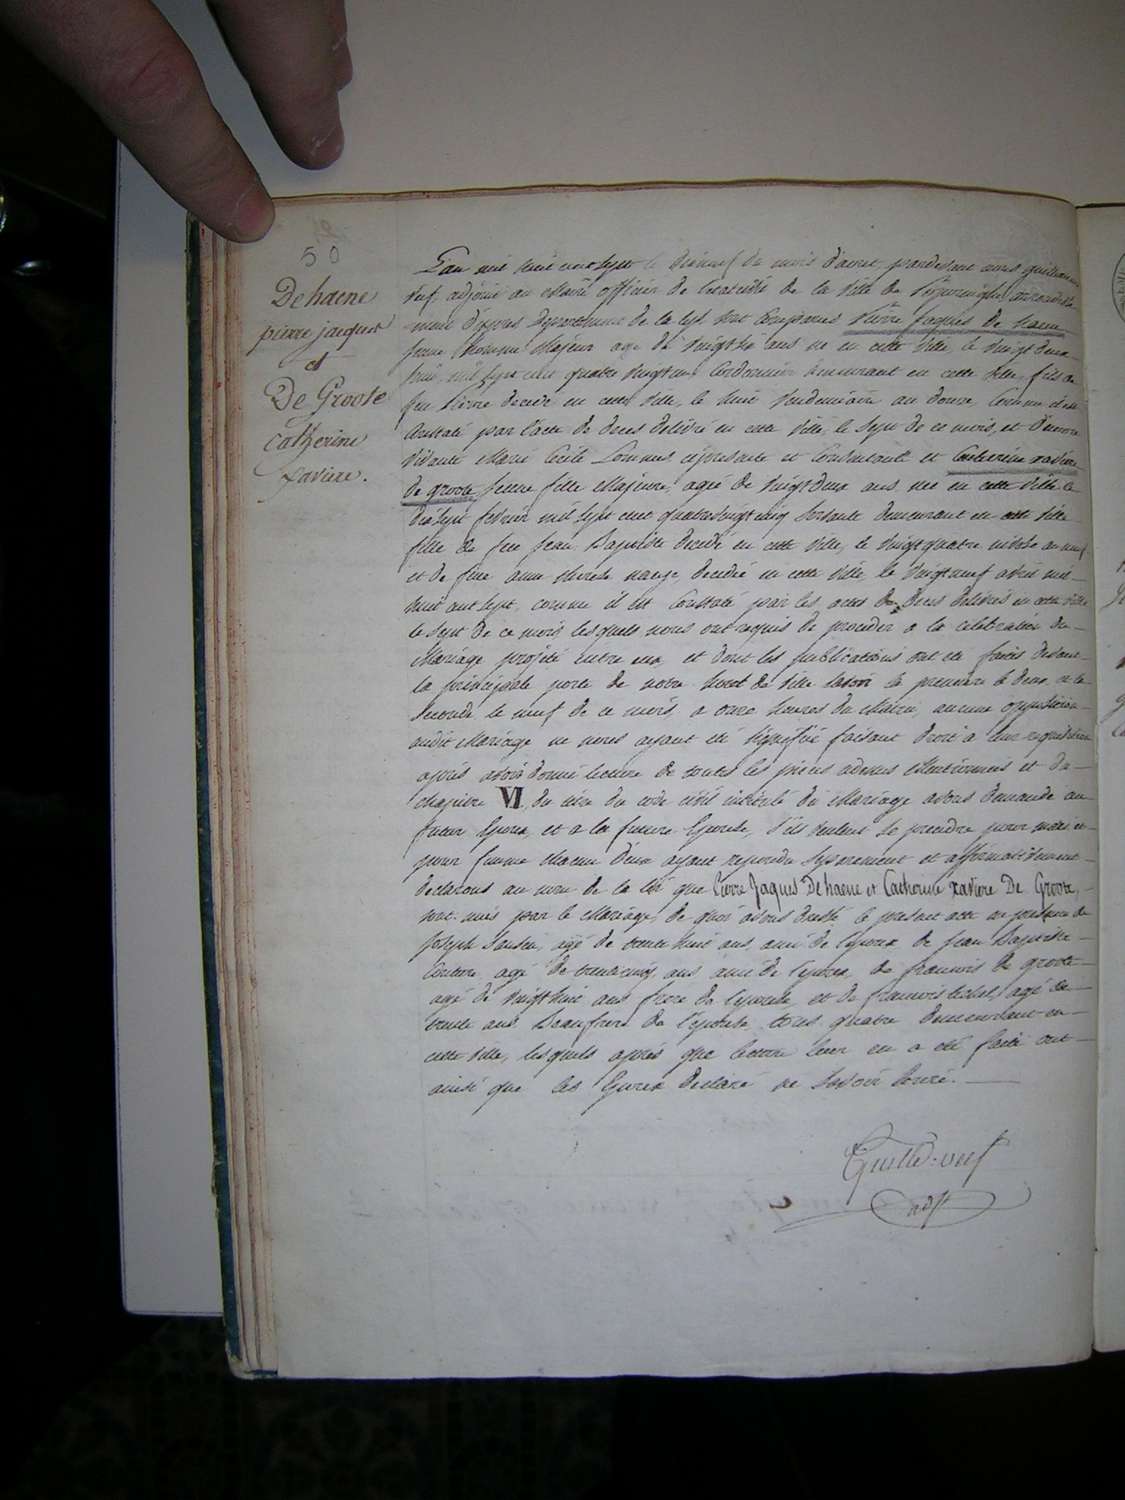 50
De haene
pierre jacques
et
De Groote
Catherine
Xaviere.
L'an mil huit cent sept le dixneuf du mois d'aout, pardevant nous guillaume
Neuf adjoint au Maire officier de l'état civil de la Ville de Poperinghe arrondisse
ment d'ypres Departement de la Lys sont comparus Pierre Jaques de haene
jeune homme Majeur age de vingt six ans ne en cette Ville, le vingt deux
mil sept cent quatre vingt un Cordonnier demeurant en cette Ville, fils de
feu Pierre decedé en cette Ville, le huit Vendemiaire an douze, Comme il est
Constaté par l'acte de deces delivré en cette Ville, le sept de ce mois, et d'encore
Vivante Marie Cecile Lommes cipresente et Consentante et Catherine xaviere
de groote jeune fille Majeure, agée de vingt deux ans, née en cette Ville le
dix sept fevrier mil sept cent quatre vingt cinq Servante demeurant en cette Ville
fille de feu Jean Baptiste decedé en cette Ville, le vingt quatre nivose an neuf
et de feue anne therese decedée en cette Ville le vingt neuf avril mil
huit cent sept, comme il est Constaté par les actes de deces delivrés en cette Ville
le sept de ce mois, lesquels nous ont requis de proceder a la celebration du
Mariage projeté entre eux, et dont les publications ont été faites devant
la principale porte de notre hotel de Ville savoir la premiere le deux et la
Seconde le neuf de ce mois, a onze heures du Matin, aucune opposition
audit Mariage ne nous ayant été signifiée faisant droit a leur requisition
après avoir donné lecture de toutes les pieces ci dessus Mentionnées et du
chapitre VI du titre du code civil intitulé du Mariage avons demandé au
futur Epoux, et a la future Epouse, s'ils veulent se prendre pour mari et
pour femme chacun d'eux ayant repondu separement et affirmativement
declarons au nom de la loi que Pierre Jaques De haene et Catherine xaviere De Groote,
sont unis par le Mariage, de quoi avons dressé le present acte en presence de
Joseph agé de trente huit ans, ami de l'epoux de Jean Baptiste
agé de trente cinq ans ami de l'epoux, de francois de groote
agé de vingt huit ans frere de l'epouse, et de francois agé de
trente ans Beaufrere de l'epouse, tous quatre demeurant en
cette Ville, lesquels après que lecture leur en a été faite ont
ainsi que les Epoux declaré ne savoir ecrire.
Guille. neuf
adjt